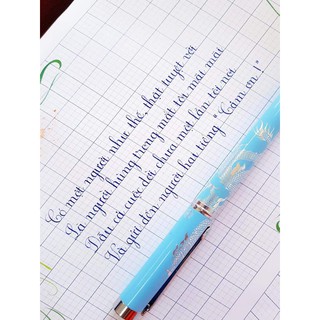 Có một người như thế, thật tuyệt vời
Là người hùng trong mắt tôi mãi mãi
Dẫu cả cuộc đời chưa một lần tôi nói
Và gửi đến người hai tiếng "Cám ơn!"